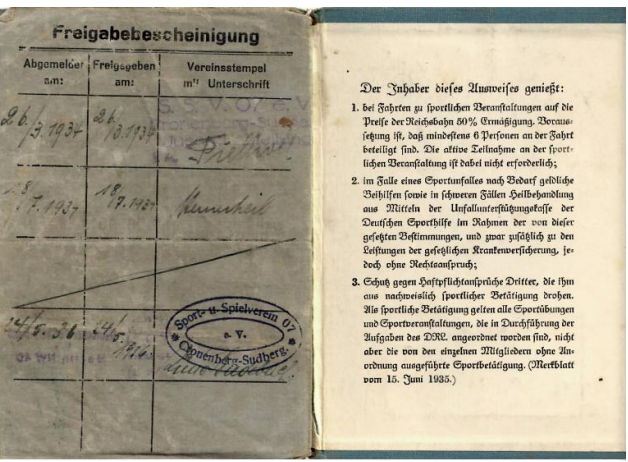 Freigabebescheinigung
Abgemeldet am: Freigegeben am: Vereinsstempel mit Unterschrift
26./3.1934 26./3.1934
S. S. V. 07 e. V.
Cronenberg-Sudberg
18./7.1937 18./7.1937
24/5. 36 24/5. 1936
Sport- u. Spielverein 07
e. V.
Cronenberg-Sudberg
Der Inhaber dieses Ausweises genießt:
1. bei Fahrten zu sportlichen Veranstaltungen auf die
Preise der Reichsbahn 50% Ermäßigung. Voraus-
setzung ist, daß mindestens 6 Personen an der Fahrt
beteiligt sind. Die aktive Teilnahme an der sport-
lichen Veranstaltung ist dabei nicht erforderlich;
2. im Falle eines Sportunfalles nach Bedarf geldliche
Beihilfen sowie in schweren Fällen Heilbehandlung
aus Mitteln der Unfallunterstützungskasse der
Deutschen Sporthilfe im Rahmen der von dieser
gesetzten Bestimmungen, und zwar zusätzlich zu den
Leistungen der gesetzlichen Krankenversicherung, je-
doch ohne Rechtsanspruch;
3. Schutz gegen Haftpflichtansprüche Dritter, die ihm
aus nachweislich sportlicher Betätigung drohen.
Als sportliche Betätigung gelten alle Sportübungen
und Sportveranstaltungen, die in Durchführung der
Aufgaben des DRL. angeordnet worden sind, nicht
aber die von den einzelnen Mitgliedern ohne An-
ordnung ausgeführte Sportbetätigung. (Merkblatt
vom 15. Juni 1935.)